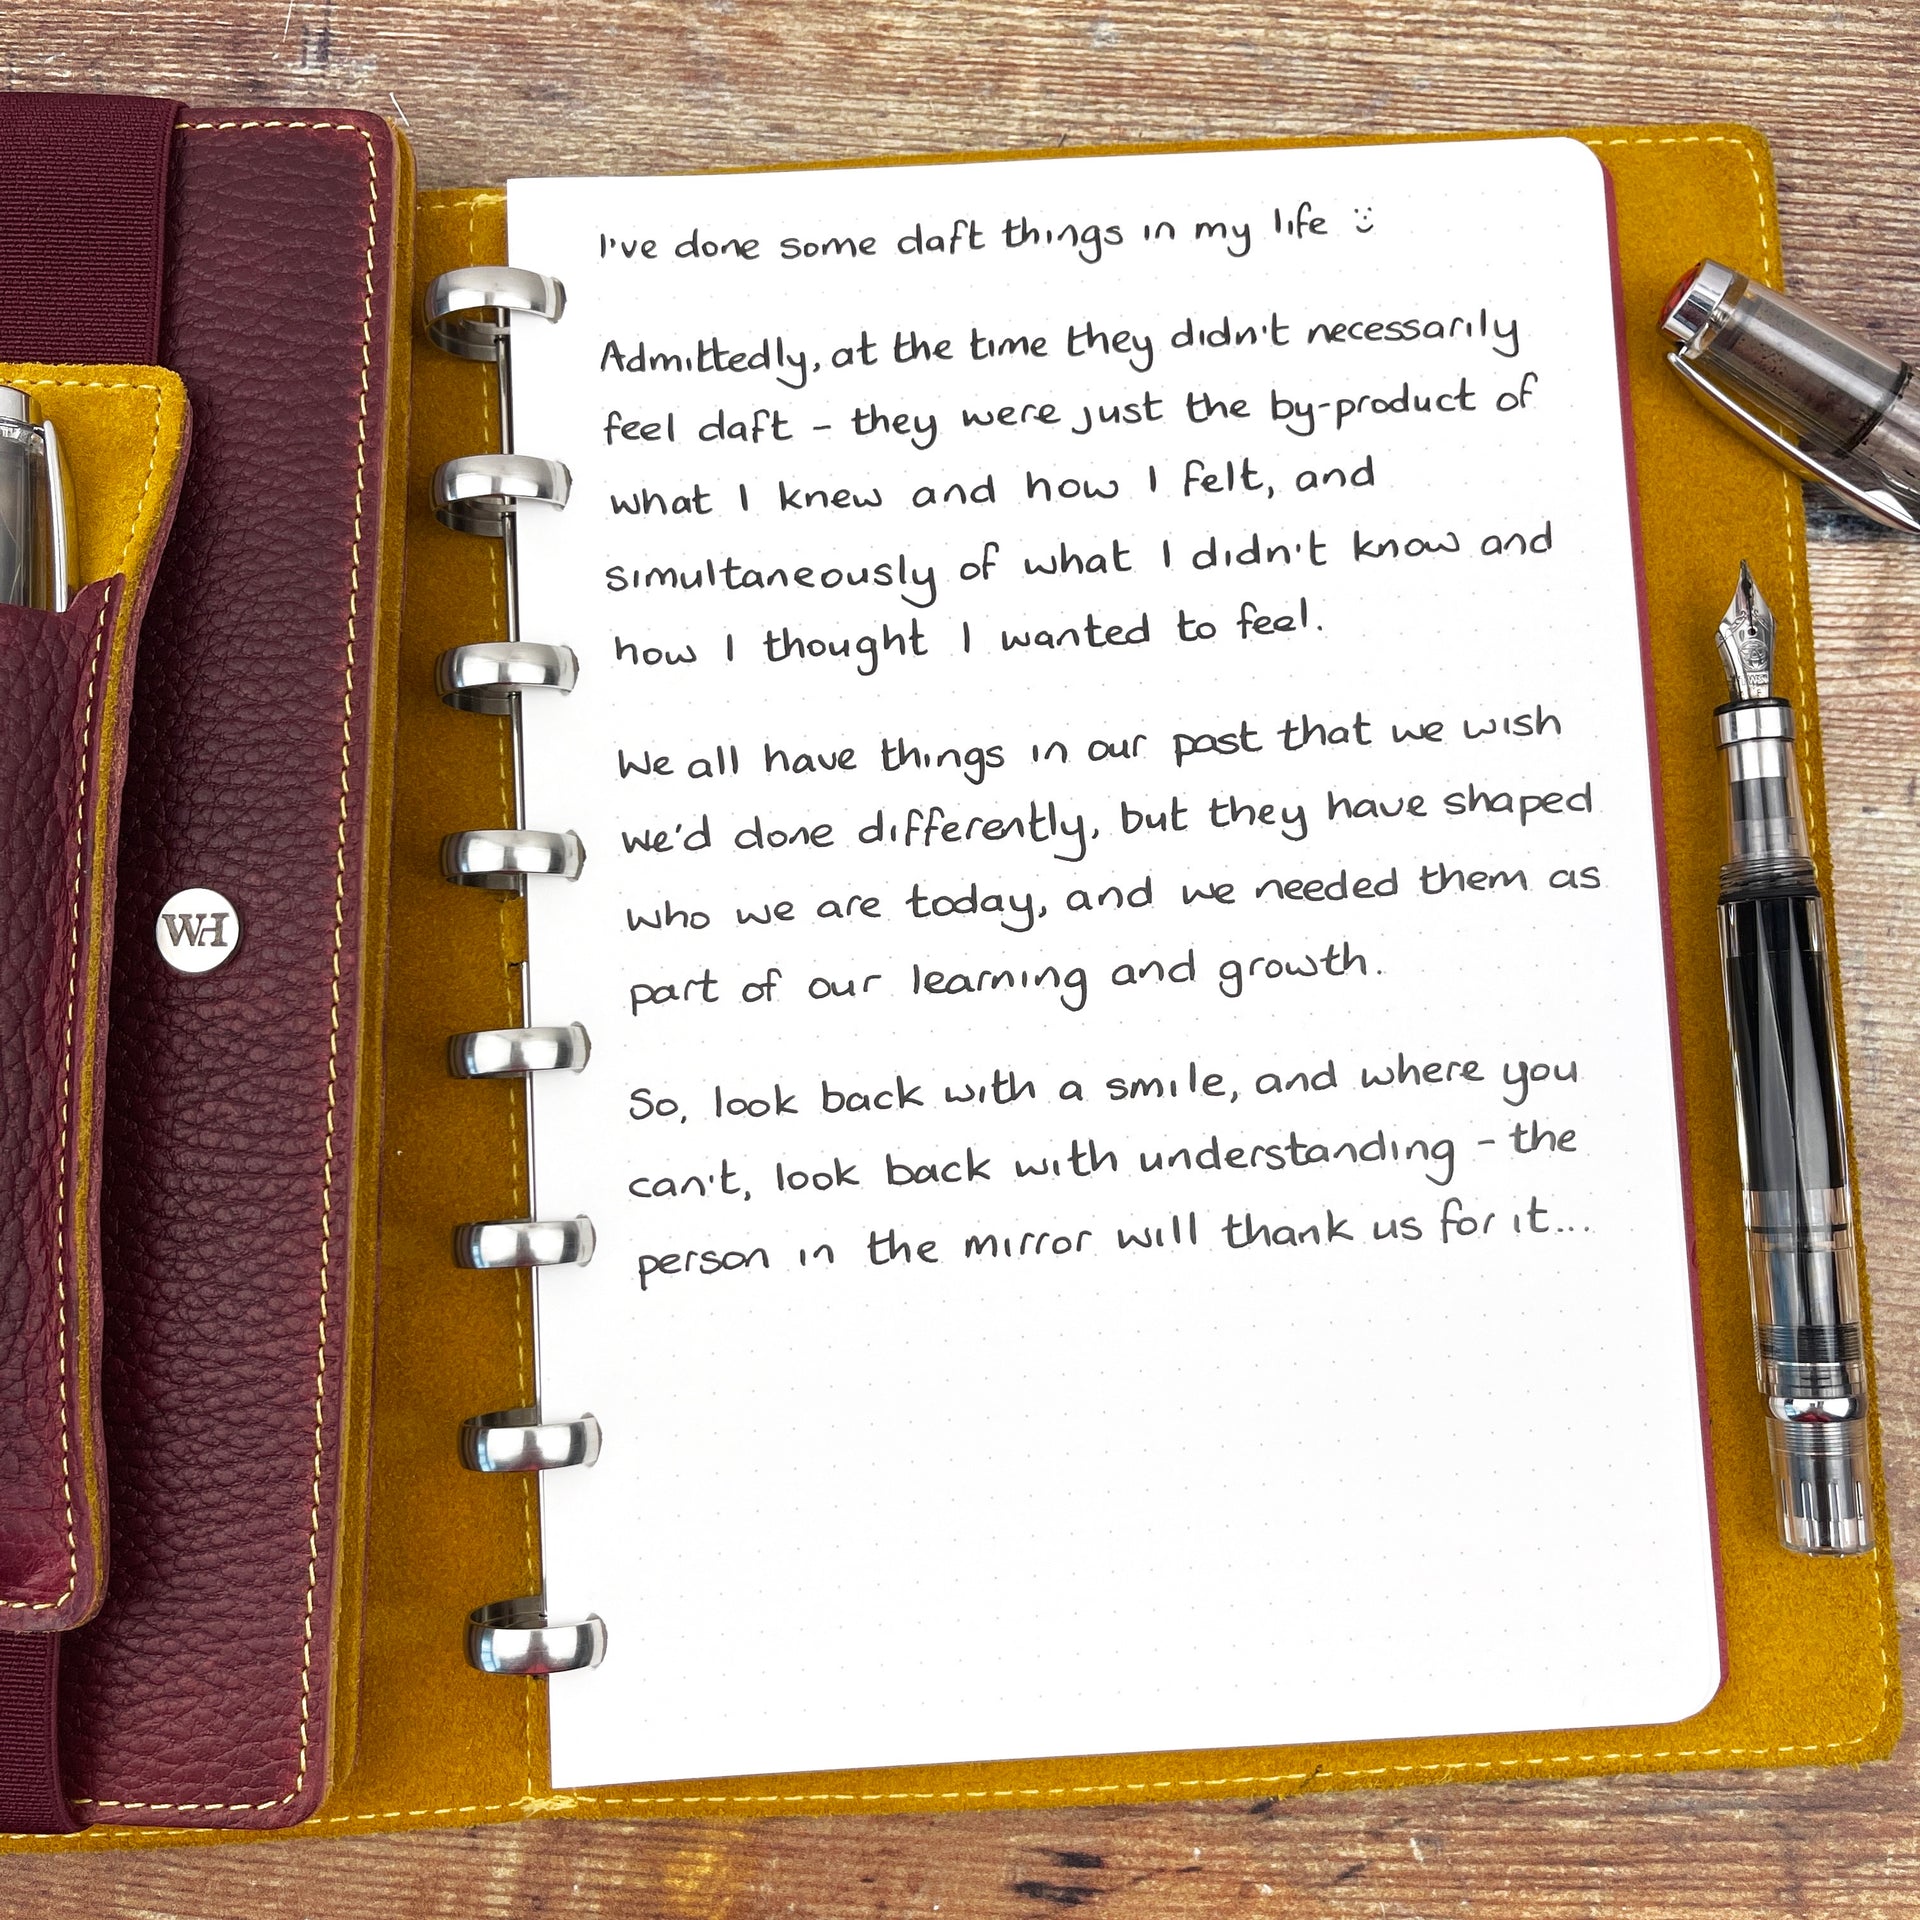 I've done some daft things in my life :)
Admittedly, at the time they didn't necessarily
feel daft - they were just the by-product of
what I knew and how I felt, and
simultaneously of what I didn't know and
how I thought I wanted to feel.
We all have things in our past that we wish
we'd done differently, but they have shaped
who we are today, and we needed them as
part of our learning and growth.
So, look back with a smile, and where you
can't, look back with understanding - the
person in the mirror will thank us for it...
WH